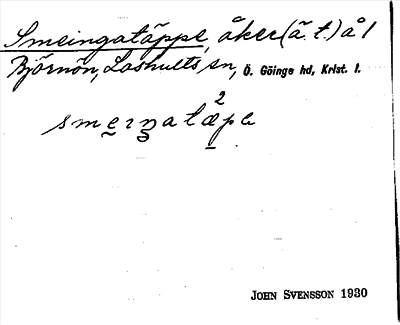 Smeingatäppe, åker (ä. t.) å 1
Björnön, Loshults sn, Ö. Göinge hd, Krist. l.
2
smeıngatæpe
JOHN SVENSSON 1930